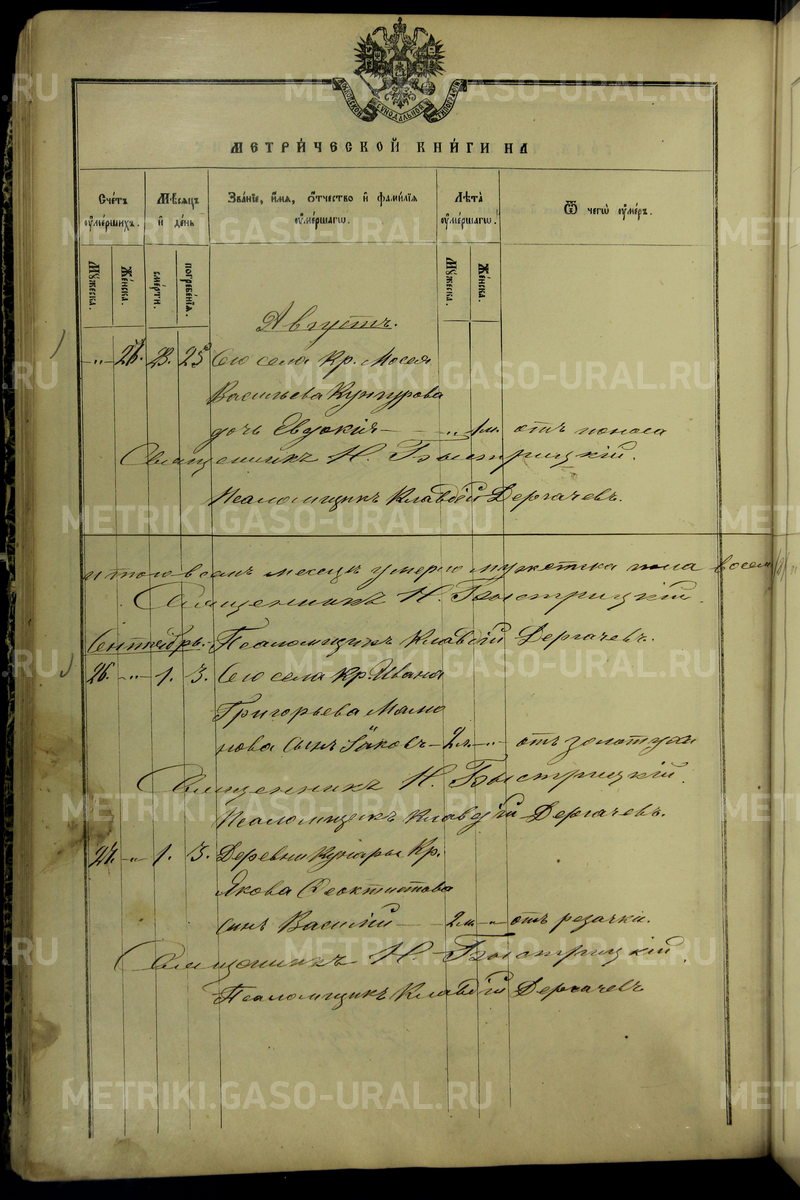 МЕТРИ́ЧЕСКОЙ КНИ́ГИ НА
Счетъ оумершихъ.
Мѣсяцъ и день
Званіе, имя, отчество и фамилія оумершагѡ.
Лѣта оумершагѡ.
Ѿ чегѡ оумеръ.
Мꙋжеска.
Женска.
смерти.
погребенія.
Мꙋжеска.
Женска.
Августъ.
—„— 28. 23. 25 Сего села Кр. Мосея
Васильева Кунгурова
дочь Евдокія — „ 1 м. отъ поноса
Священникъ Н. Быстрицкій.
Псаломщикъ Клавдій Дергачевъ.
Итого в семъ месяце умерло мужеска пола восемь (8)
Священникъ Н. Быстрицкій.
Сентябрь. Псаломщикъ Клавдій Дергачевъ.
26. —„— 1. 3. Сего села Кр. Ивана
Григорьева Мамо
нова сынъ Іаковъ — 2 л. —„— отъ золотухи
Священникъ Н. Быстрицкій.
Псаломщикъ Клавдій Дергачевъ.
27. —„ 1. 3. Деревни Кунары Кр.
Якова Феоктистова
сынъ Василій — 2 м. —„— отъ резачки.
Священникъ Н. Быстрицкій.
Псаломщикъ Клавдій Дергачевъ
METRIKI.GASO-URAL.RU